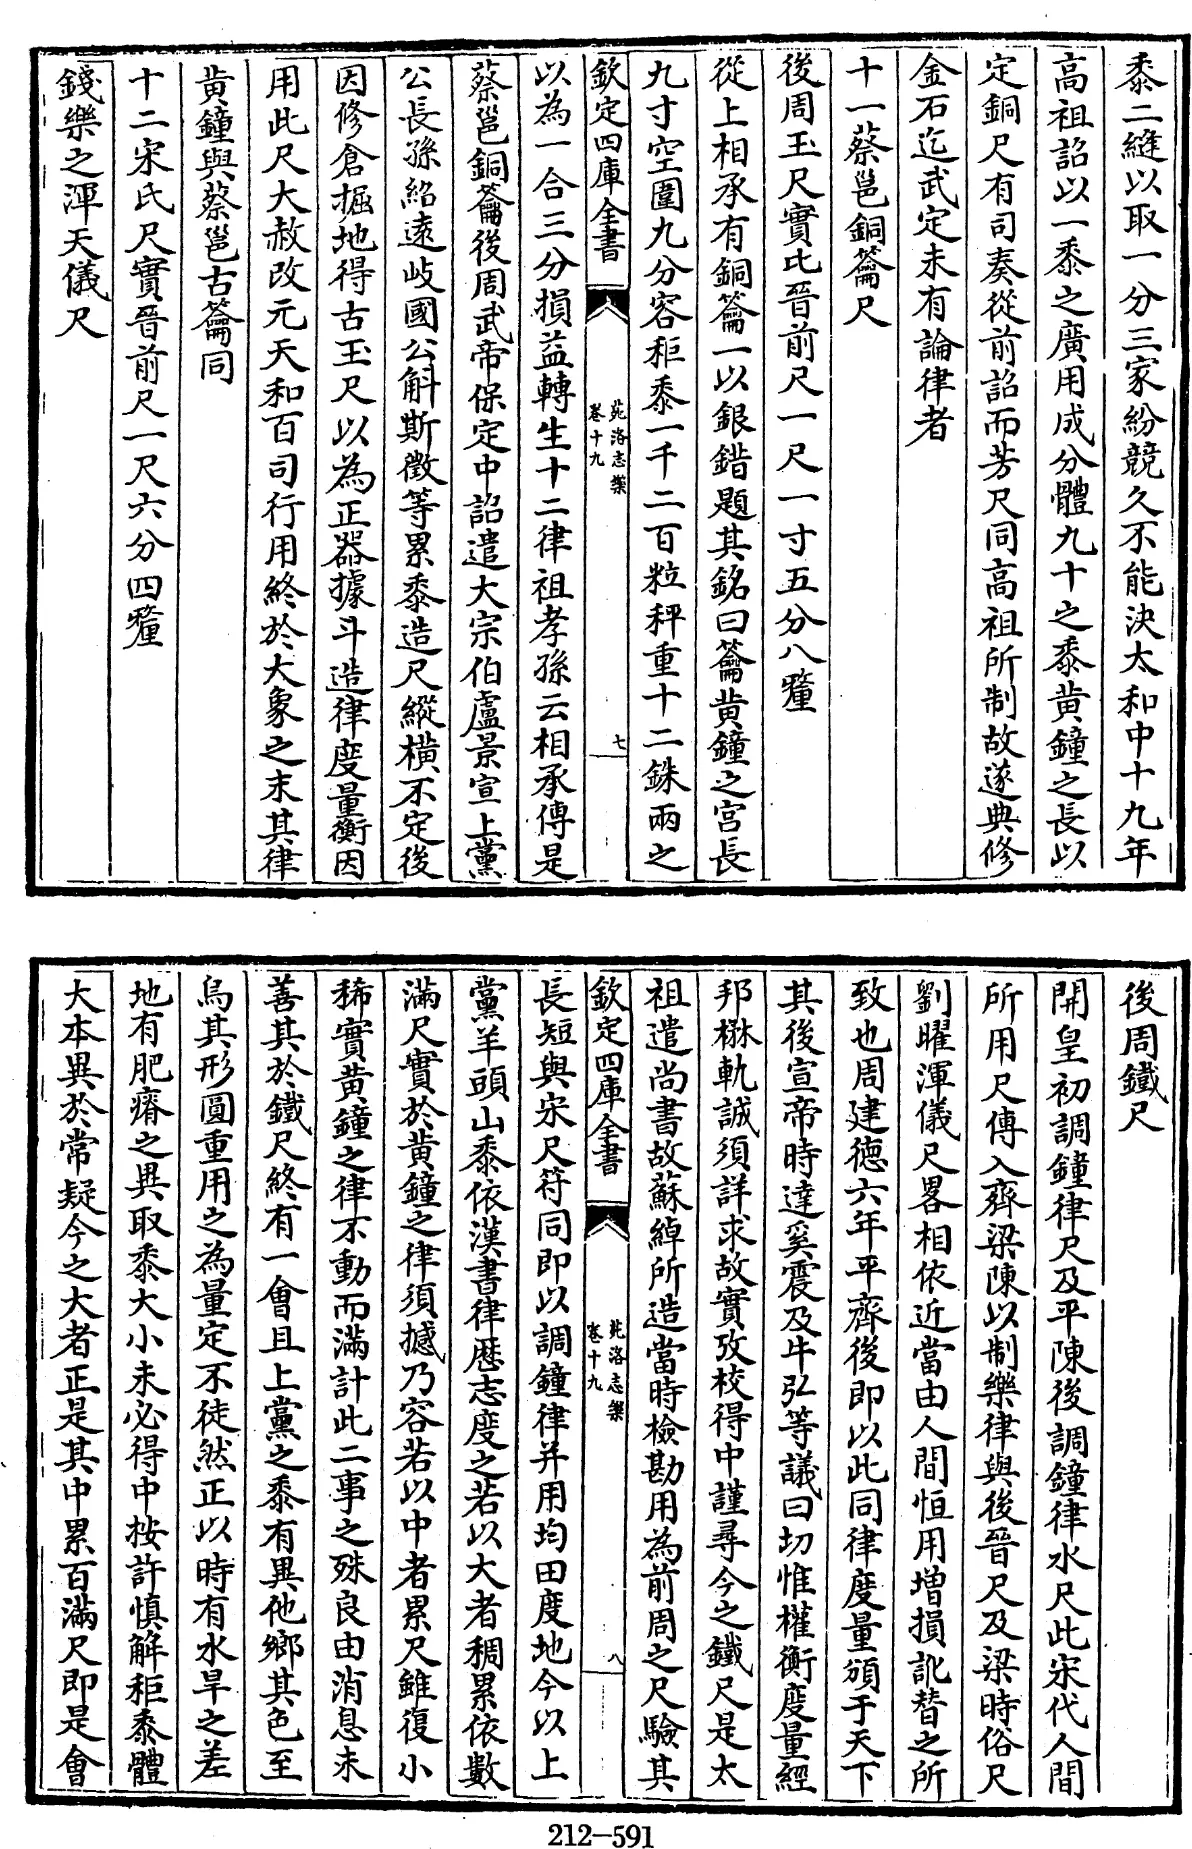 黍二縫以取一分三家紛競久不能決太和中十九年
高祖詔以一黍之廣用成分體九十之黍黄鐘之長以
定銅尺有司奏從前詔而芳尺同高祖所制故遂典修
金石迄武定未有論律者
十一蔡邕銅籥尺
後周玉尺實比晉前尺一尺一寸五分八釐
從上相承有銅籥一以銀錯題其銘曰籥黄鐘之宫長
九寸空圍九分容秬黍一千二百粒秤重十二銖兩之
欽定四庫全書
苑洛志樂
卷十九
七
以為一合三分損益轉生十二律祖孝孫云相承傳是
蔡邕銅籥後周武帝保定中詔遣大宗伯盧景宣上黨
公長孫紹遠岐國公斛斯徵等累黍造尺縱横不定後
因修倉掘地得古玉尺以為正器據斗造律度量衡因
用此尺大赦改元天和百司行用終於大象之末其律
黄鐘與蔡邕古籥同
十二宋氏尺實晉前尺一尺六分四釐
錢樂之渾天儀尺
後周鐵尺
開皇初調鐘律尺及平陳後調鐘律水尺此宋代人間
所用尺傳入齊梁陳以制樂律與後晉尺及梁時俗尺
劉曜渾儀尺畧相依近當由人間恒用增損訛替之所
致也周建德六年平齊後即以此同律度量頒于天下
其後宣帝時達奚震及牛弘等議曰切惟權衡度量經
邦楙軌誠須詳求故實攷校得中謹尋今之鐵尺是太
祖遣尚書故蘇綽所造當時檢勘用為前周之尺驗其
欽定四庫全書
苑洛志樂
卷十九
八
長短與宋尺符同即以調鐘律并用均田度地今以上
黨羊頭山黍依漢書律歷志度之若以大者稠累依數
滿尺實於黄鐘之律須撼乃容若以中者累尺雖復小
稀實黄鐘之律不動而滿計此二事之殊良由消息未
善其於鐵尺終有一會且上黨之黍有異他鄉其色至
烏其形圓重用之為量定不徒然正以時有水旱之差
地有肥瘠之異取黍大小未必得中按許慎解秬黍體
大本異於常疑今之大者正是其中累百滿尺即是會
212-591